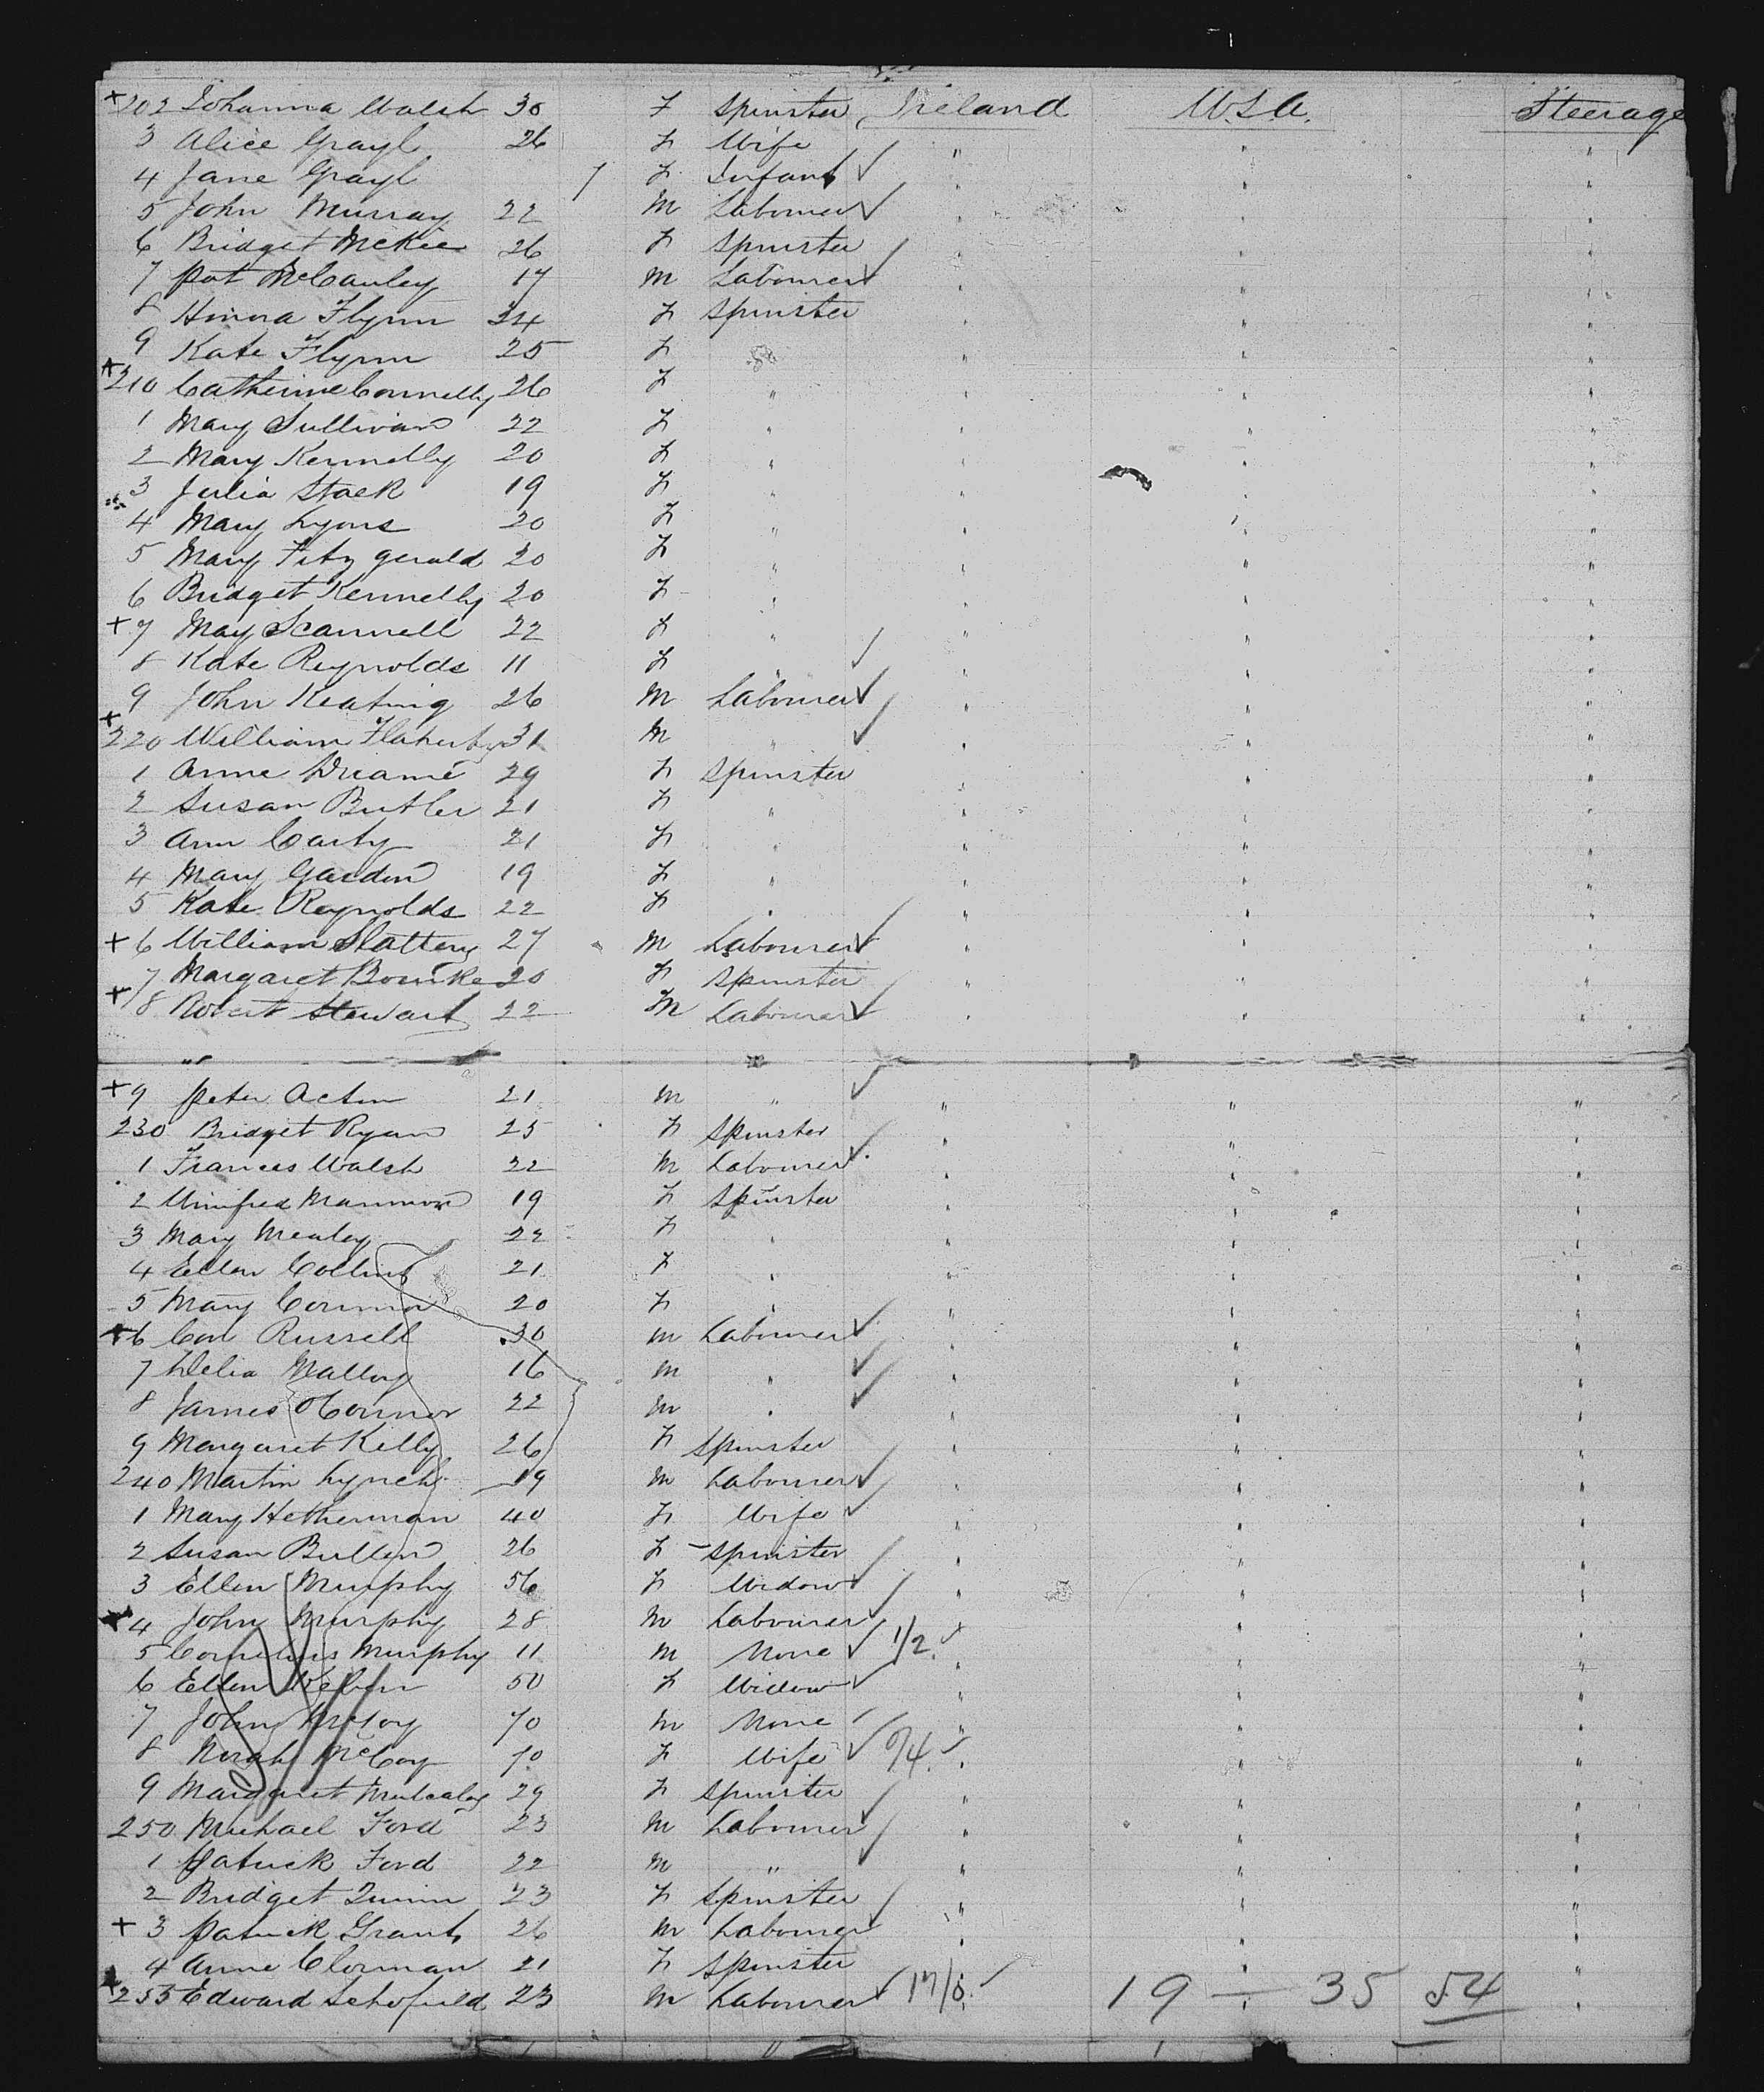 +202 Johanna Walsh 30 F Spinster Ireland U.S.A. Steerage
3 Alice Grayl 26 F Wife " " "
4 Jane Grayl 1 F Infant ✓ " " "
5 John Murray 22 M Labourer ✓ " " "
6 Bridget McKie 26 F Spinster " " "
7 Pat McCauley 17 M Labourer ✓ " " "
8 Honora Flynn 24 F Spinster " " "
9 Kate Flynn 25 F " " "
+210 Catherine Connelly 26 F " " " "
1 Mary Sullivan 22 F " " " "
2 Mary Kennelly 20 F " " " "
3 Julia Stack 19 F " " " "
4 Mary Lyons 20 F " " " "
5 Mary Fitz gerald 20 F " " " "
6 Bridget Kennelly 20 F " " " "
+7 May Scannell 22 F " " " "
8 Kate Reynolds 11 F " ✓ " " "
9 John Keating 26 M Labourer ✓ " " "
+220 William Flaherty 31 M " ✓ " " "
1 Anne 29 F Spinster " " "
2 Susan Butler 21 F " " " "
3 Ann Carty 21 F " " " "
4 Mary Gardin 19 F " " " "
5 Kate Reynolds 22 F " " " "
+6 William Slattery 27 M Labourer ✓ " " "
7 Margaret Bourke 20 F Spinster " " "
+8 Robert Stewart 22 M Labourer ✓ " " "
+9 Peter Acton 21 M " ✓ " " "
230 Bridget Ryan 25 F Spinster " " "
1 Frances Walsh 22 M Labourer ✓ " " "
2 Winifred Mannion 19 F Spinster " " "
3 Mary Mealey 22 F " " " "
4 Ellen Collins 21 F " " " "
5 Mary Connor 20 F " " " "
+6 Con Russell 30 M Labourer ✓ " " "
7 Delia Malloy 16 M " ✓ " " "
8 James OConnor 22 M " ✓ " " "
9 Margaret Kelly 26 F Spinster " " "
240 Martin Lynch 19 M Labourer ✓ " " "
1 Mary Hetherman 40 F Wife ✓ " " "
2 Susan Bullen 26 F Spinster " " "
3 Ellen Murphy 56 F Widow ✓ " " "
+4 John Murphy 28 M Labourer ✓ " " "
5 Cornelius Murphy 11 M None ✓ 1/2 ✓ " " "
6 Ellen 50 F Widow ✓ " " "
7 John McCoy 70 M None ✓ " " "
8 Norah McCoy 70 F Wife ✓ 0/4 ✓ " " "
9 Margaret Mulcahy 29 F Spinster " " "
250 Michael Ford 23 M Labourer ✓ " " "
1 Patrick Ford 22 M " ✓ " " "
2 Bridget Quinn 23 F Spinster " " "
+3 Patrick Grant 26 M Labourer ✓ " " "
4 Anne Clorman 21 F Spinster " " "
+255 Edward Schofield 23 M Labourer ✓ 17/0 ✓ 19 — 35 54 "